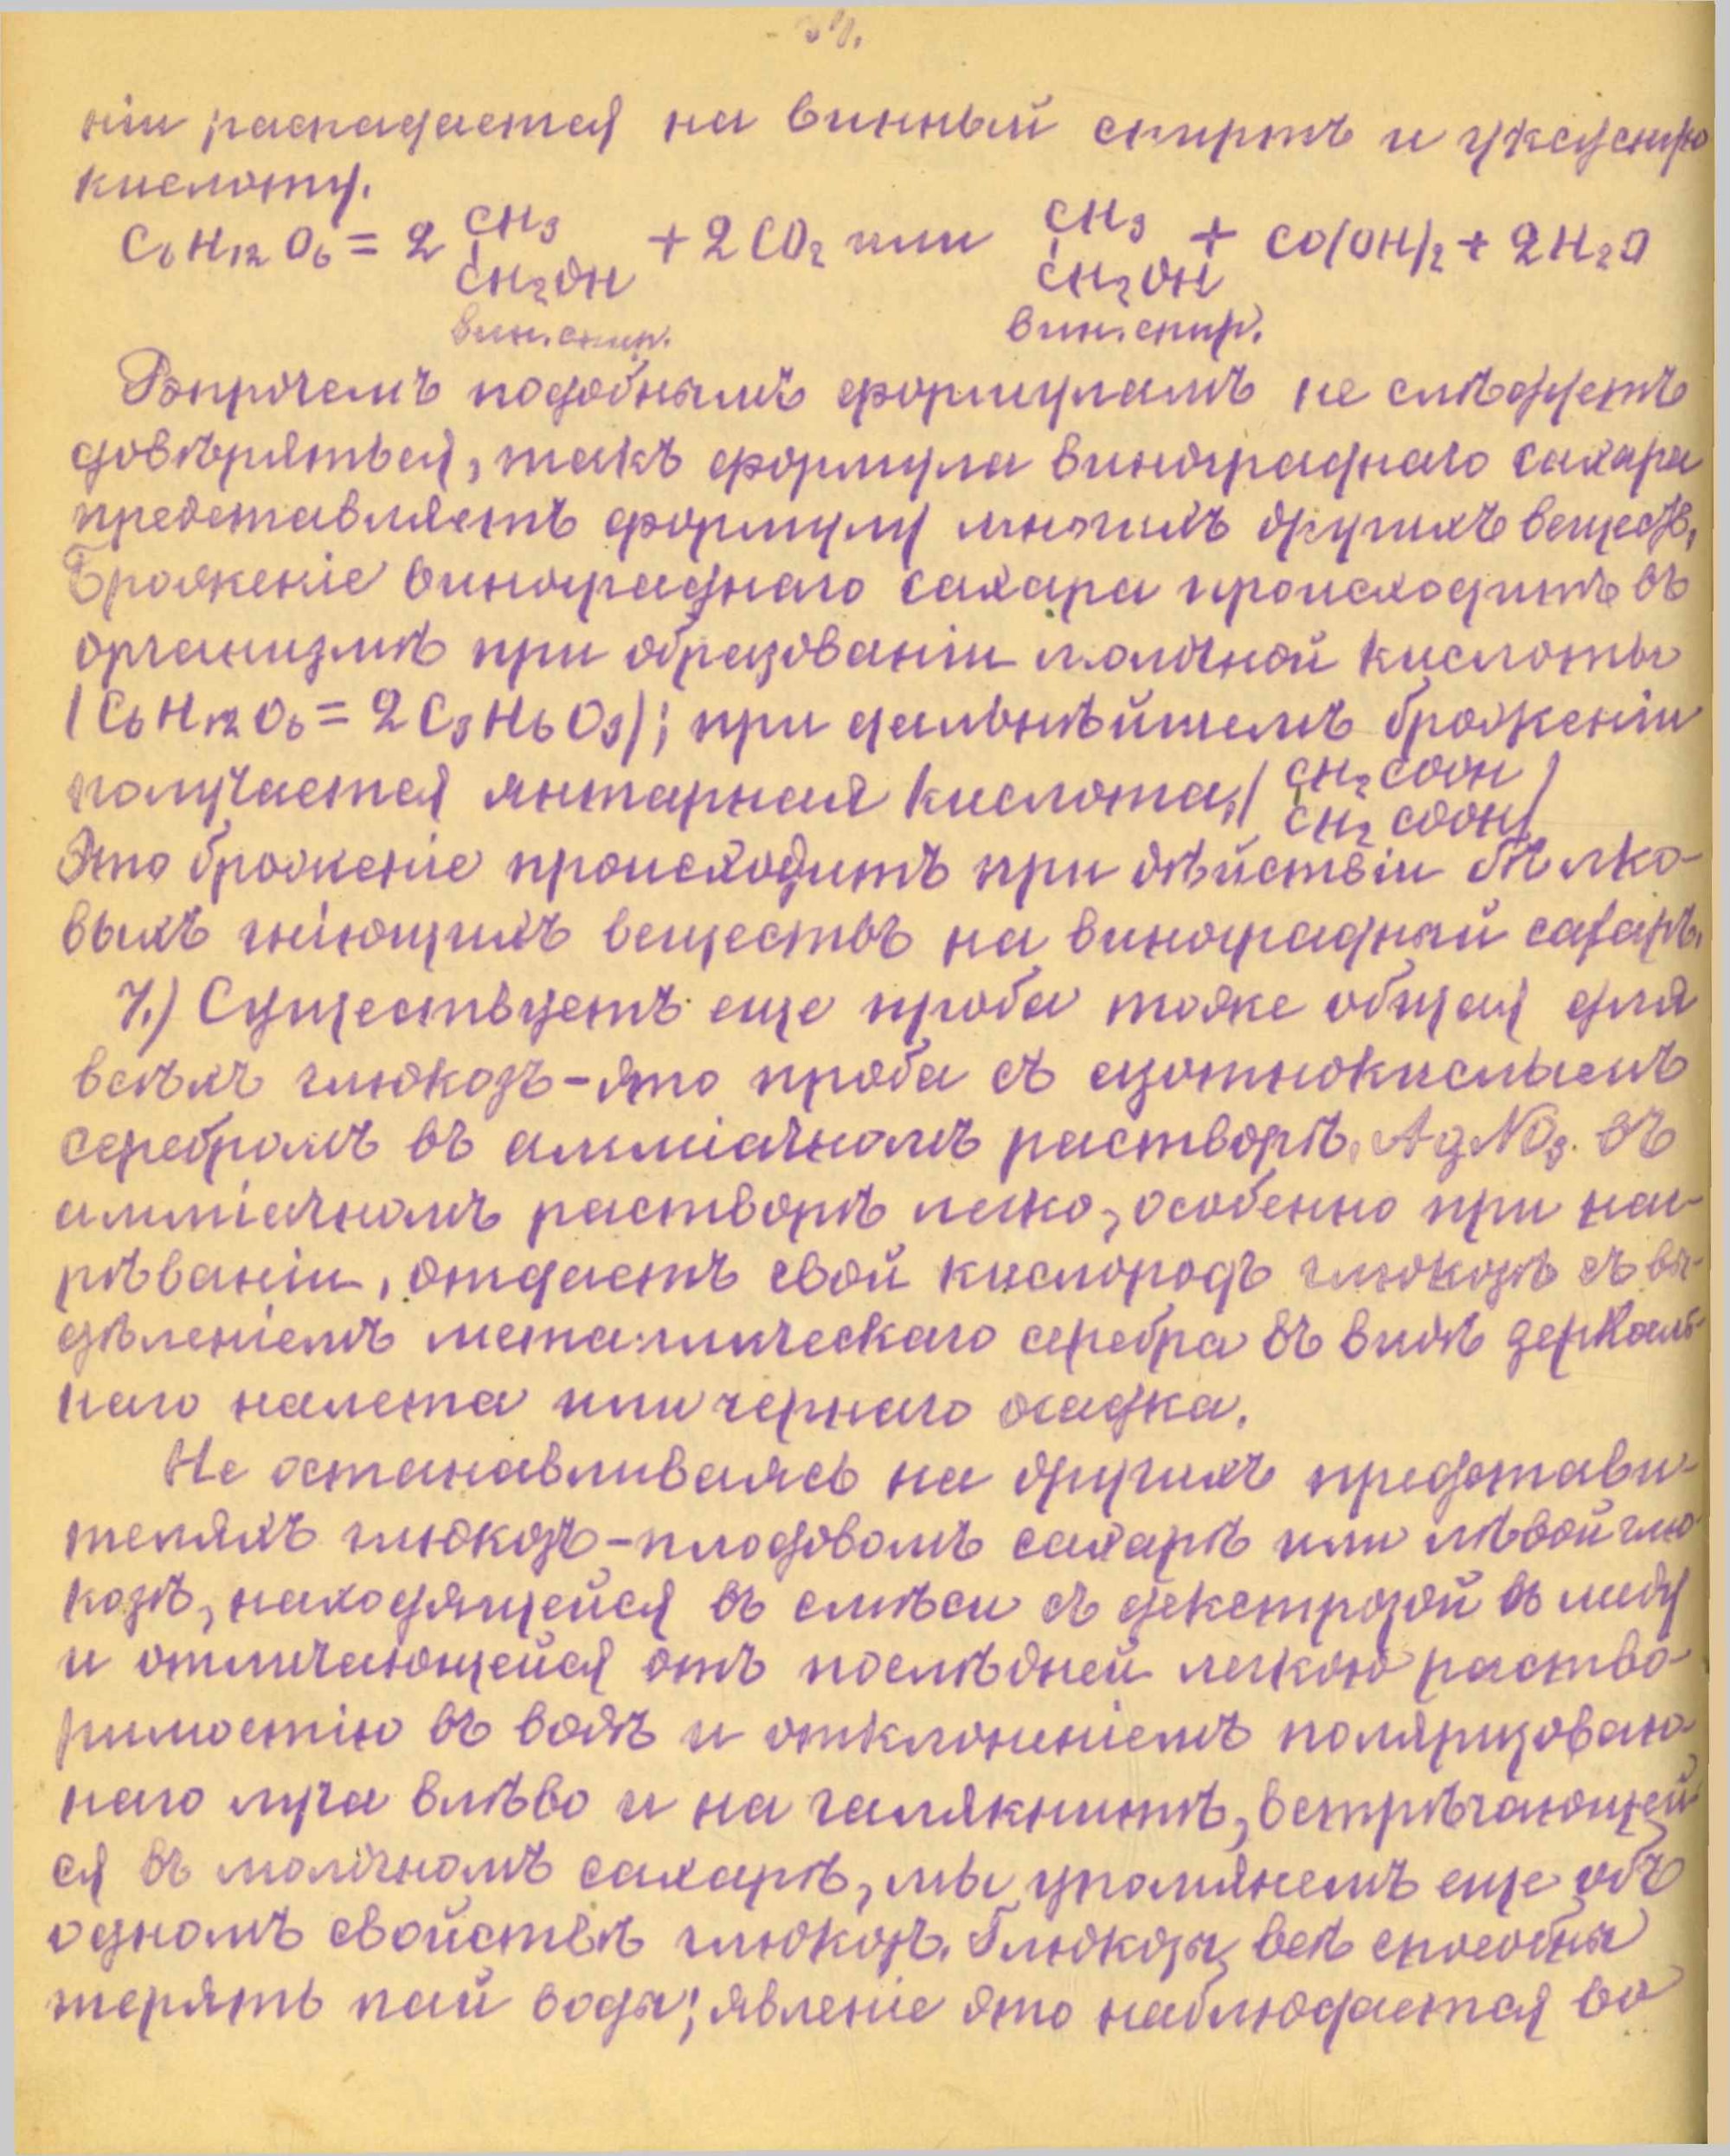 ніи распадается на винный спиртъ и уксусную
кислоту.
C₆H₁₂O₆ = 2 CH₃ + 2CO₂ или CH₃ + CO(OH)₂ + 2H₂O
CH₂OH CH₂OH
вин. спир. вин. спир.
Впрочемъ подобнымъ формуламъ не слѣдуетъ
довѣряться, такъ формула винограднаго сахара
представляетъ формулу многихъ другихъ веществ.
Броженіе винограднаго сахара происходитъ въ
организмѣ при образованіи молочной кислоты
(C₆H₁₂O₆ = 2C₃H₆O₃); при дальнѣйшемъ броженіи
получается янтарная кислота, (CH₂COOH)
CH₂COOH
Это броженіе происходитъ при дѣйствіи бѣлко-
выхъ гніющихъ веществъ на виноградный сахаръ.
7.) Существуетъ еще проба тоже общая для
всѣхъ глюкозъ - это проба съ азотнокислымъ
серебромъ въ амміачномъ растворѣ. AgNO₃ въ
амміачномъ растворѣ легко, особенно при наг-
рѣваніи, отдаетъ свой кислородъ глюкозѣ съ вы-
дѣленіемъ металлическаго серебра въ видѣ зеркаль-
наго налета или чернаго осадка.
Не останавливаясь на другихъ представи-
теляхъ глюкозъ - плодовомъ сахарѣ или лѣвой глю-
козѣ, находящейся въ смѣси съ декстрозой въ меду
и отличающейся отъ послѣдней легкою раство-
римостію въ водѣ и отклоненіемъ поляризован-
наго луча влѣво и на галякнитѣ, встрѣчающей-
ся въ молочномъ сахарѣ, мы упомянемъ еще объ
одномъ свойствѣ глюкозъ. Глюкозы всѣ способны
терять пай воды; явленіе это наблюдается во